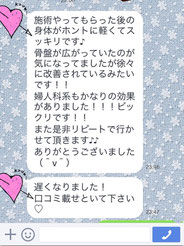 施術やってもらった後の
身体がホントに軽くてス
ッキリです♪
骨盤が広がっていたのが
気になってましたが徐々
に改善されているみたい
です！！
婦人科系もかなりの効果
がありました！！！ビッ
クリです！！
また是非リピートで行か
せて頂きます♪♪
ありがとうございました
（＾v＾）
23:46
遅くなりました！
口コミ載せといて下さい
♡
23:47